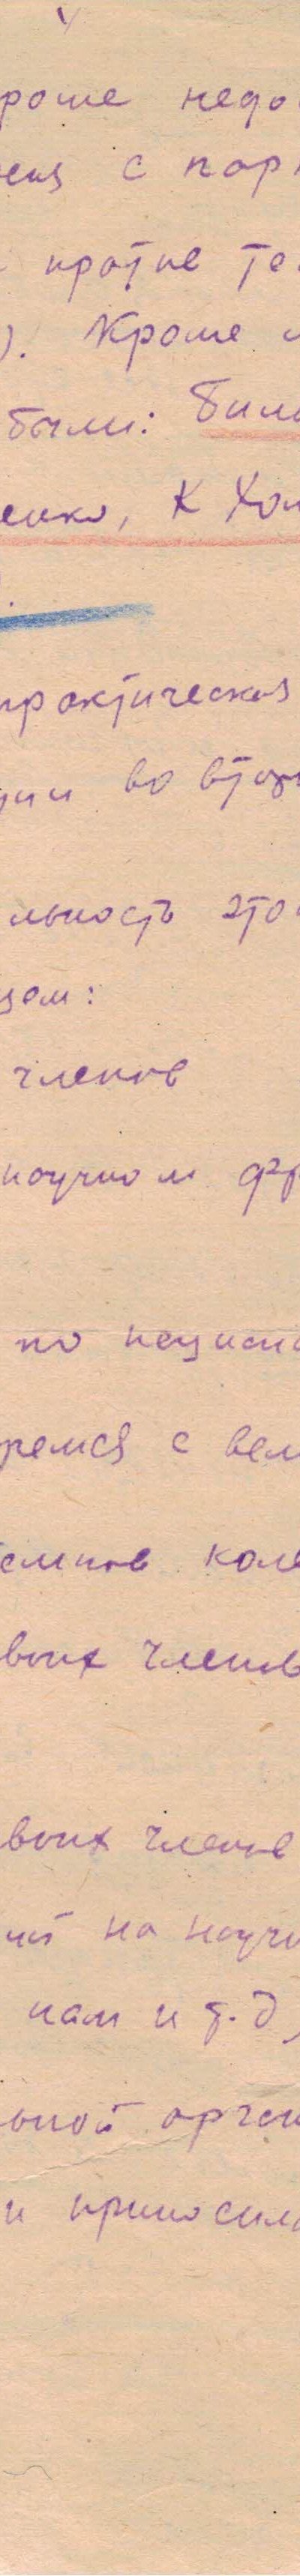 роше недо
ния с пар
кротне те
). Кроме
были: Били
енко, К Хол
практическая
ции во втор
льность это
зом:
членов
научном фр
по нециси
ремся с вел
темпов кол
воих членов
воих членов
ий на научн
нам и т.д,
ьной орган
и приносил